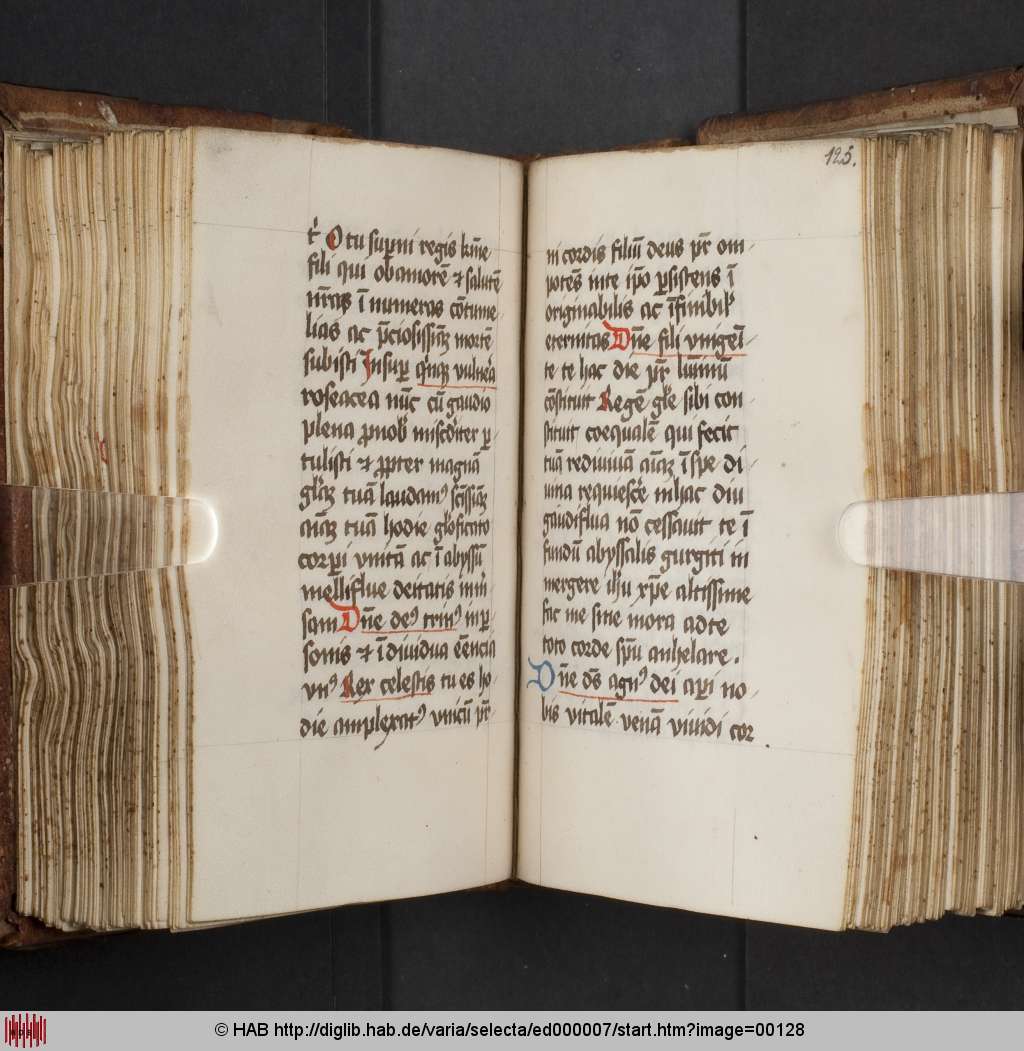 O tu sup̄ni regis kīne
fili qui ob amorē ⁊ salutē
nr̄aȝ ī numeras cōtume
lias ac p̄ciosissimā mortē
subisti Insup̄ qͥnqȝ vulnēa
roseacea nūc cū gaudio
plena
tulisti ⁊ ꝓpter magnā
tuā laudamꝰ
tuā hodie glͦificato
corp̄i vnitā ac ī abyssū
melliflue deitatis
sam Dn̄e deꝰ trinꝰ inp̄
sonis ⁊ īdiuidua eēncia
vnꝰ Rex celestis tu es ho
die amplexatꝰ vnicū pr̄
125.
ni cordis filiū deus pr̄ om
potēs in te ip̄o ꝑsistens ī
originabilis ac īfinibilͥ
eternitas Dn̄e fili vnigeī
te te hac die pr̄ lumīnū
cōstituit Regē glīe sibi con
stituit coequalē qui fecit
tuā rediuiuā aīaȝ ī spe di
uina requiesc̄e in hac diu
gaudiflua nō cessauit te ī
fundū abyssalis gurgiti in
mergere ih̄u xp̄e altissime
fac me sine mora ad te
toto corde sp̄u anhelare.
Dn̄e ds̄ agnꝰ dei ap̄i no
bis vitalē venā viuidi cor
© HAB http://diglib.hab.de/varia/selecta/ed000007/start.htm?image=00128